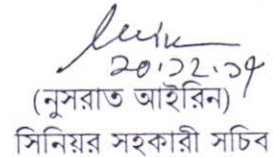 ২০.১২.১৭
(নুসরাত আইরিন)
সিনিয়র সহকারী সচিব